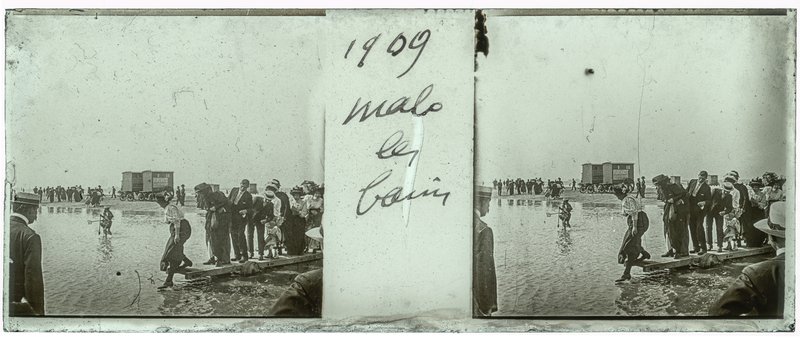 1909
malo
les
bain